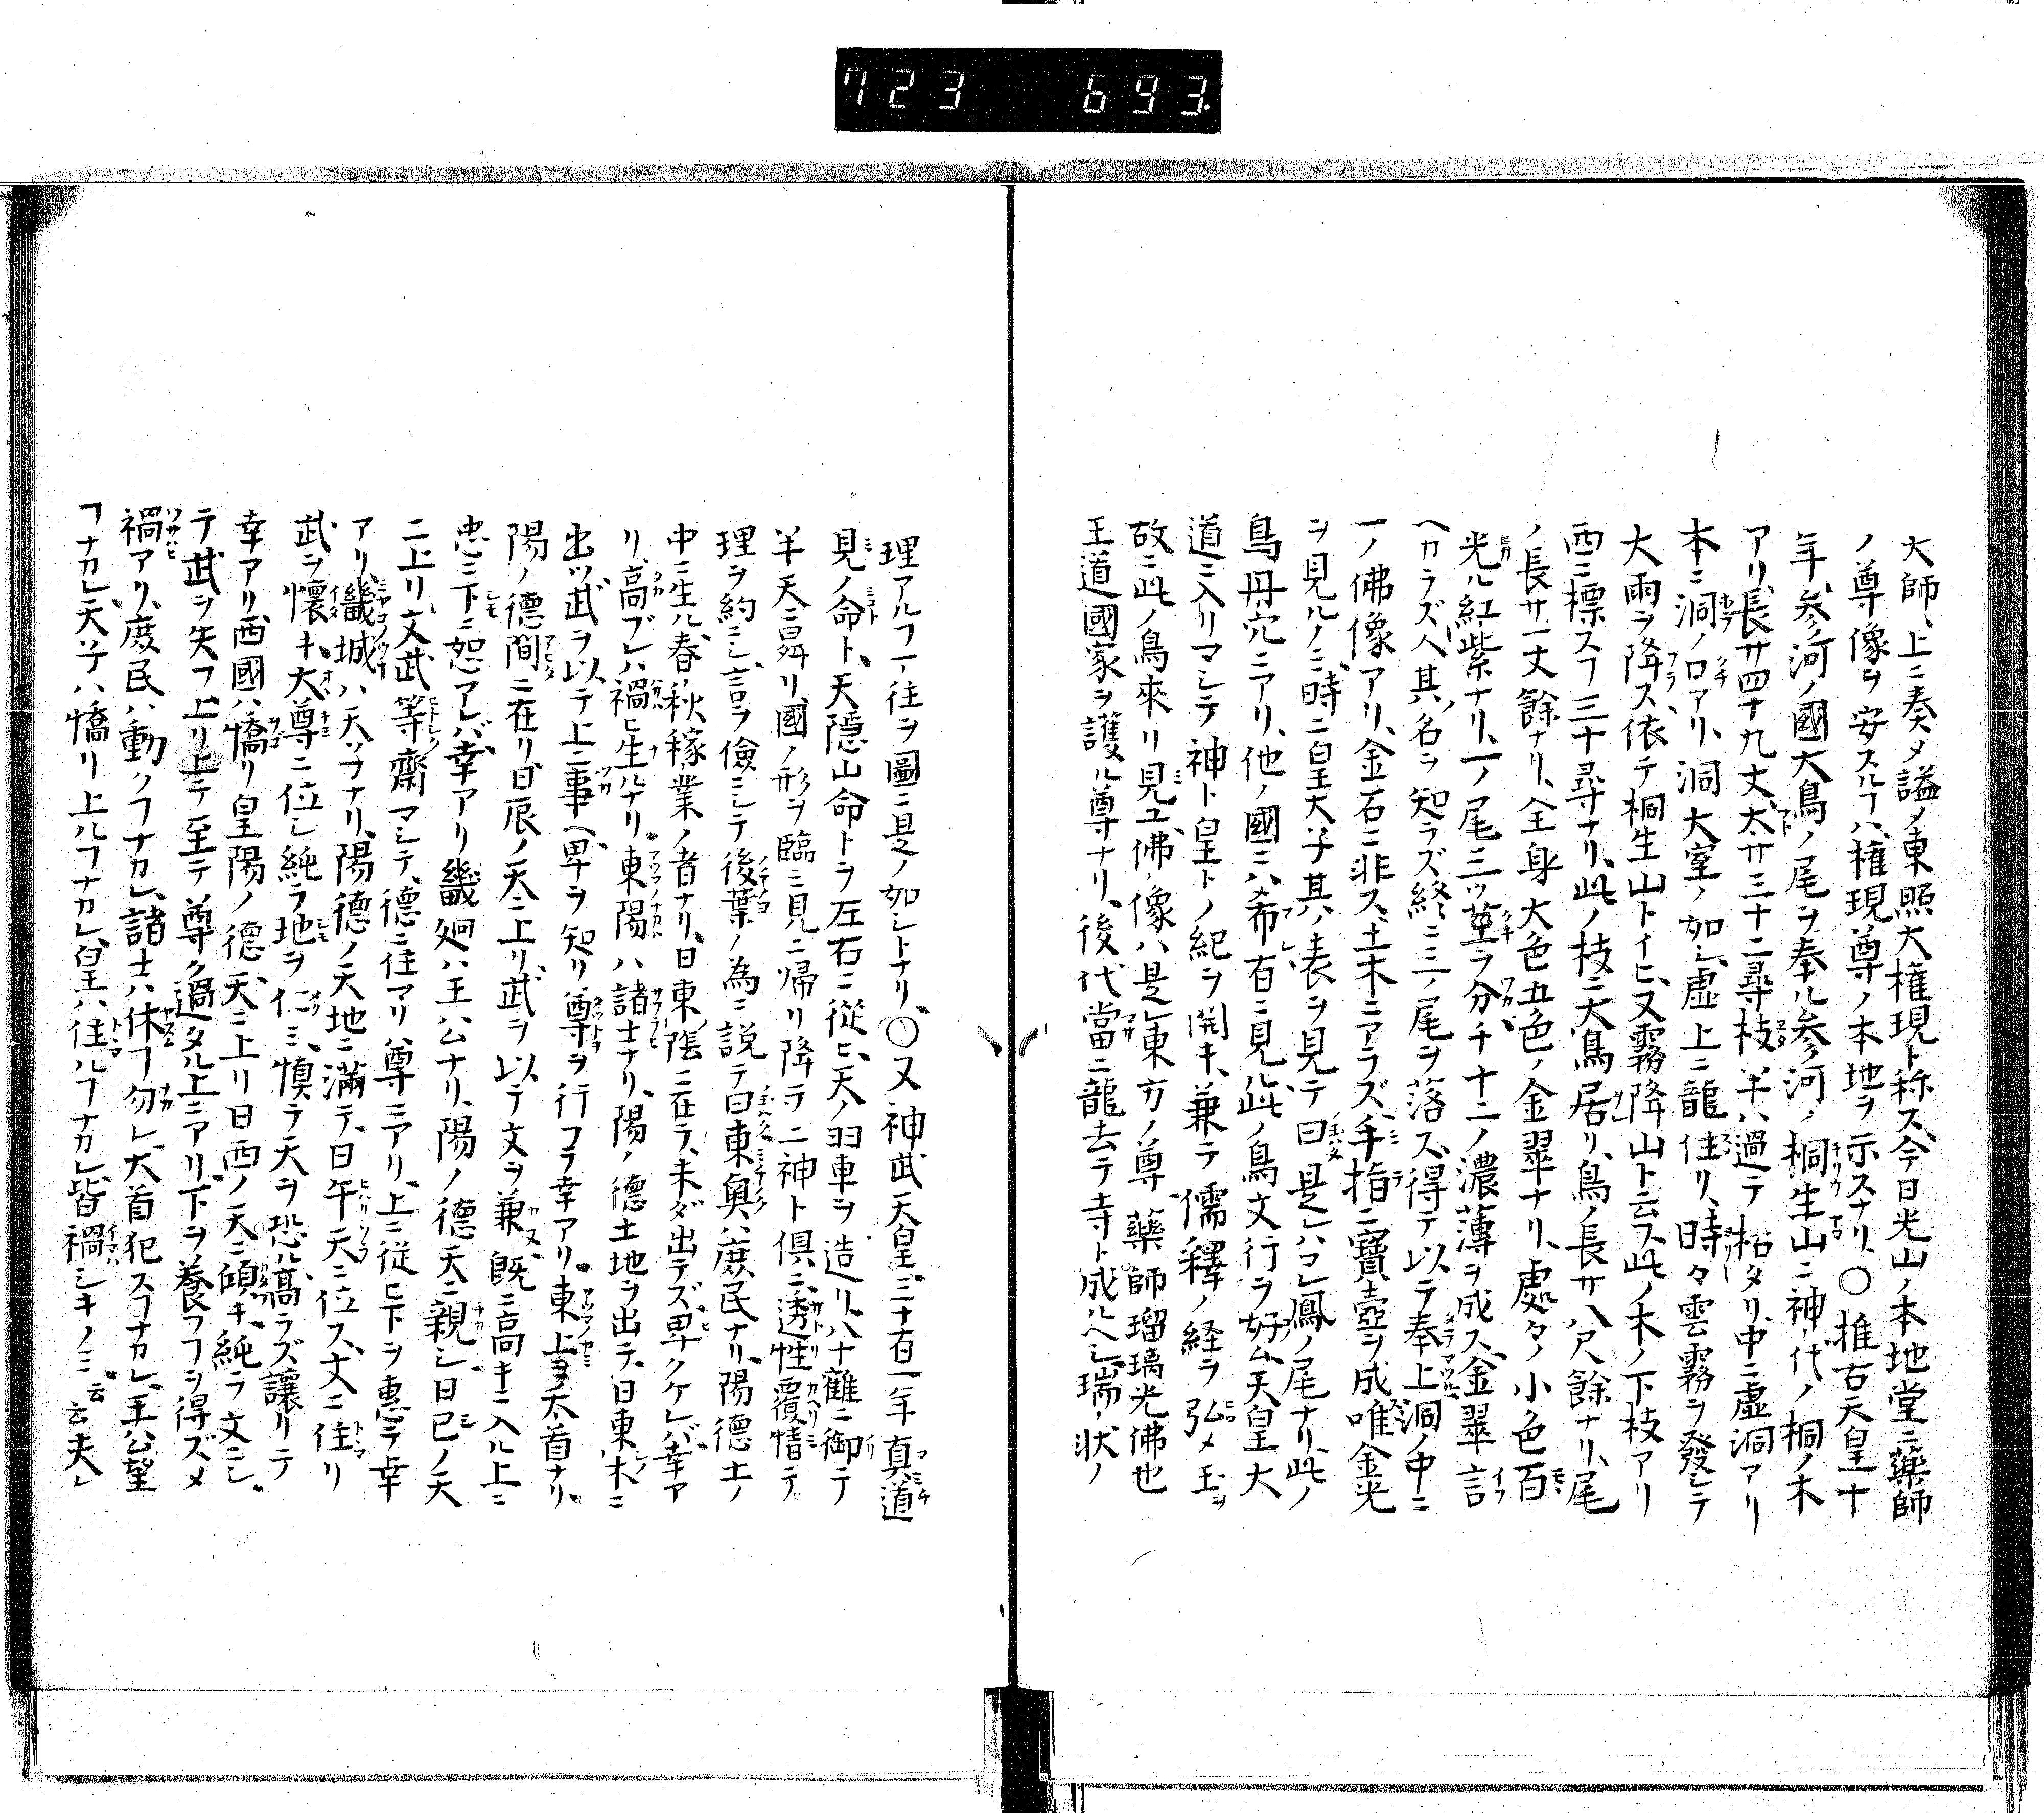 723 693.
大師、上ニ奏メ謚メ東照大権現ト称ス、今日光山ノ本地堂ニ藥師
ノ尊像ヲ安スルヿハ、権現尊ノ本地ヲ示スナリ、〇推古天皇十
年、參河ノ國大鳥ノ尾ヲ奉ル參河ノ桐生山ニ神代ノ桐ノ木
アリ、長サ四十九丈、太サ三十二尋、枝半ハ過テ枯タリ、中ニ虚洞アリ
本ニ洞ノ口アリ、洞大室ノ如シ、虚上ニ龍住リ、時々雲霧ヲ發シテ
大雨ヲ降ス、依テ桐生山トイヒ、又霧降山ト云フ、此ノ木ノ下枝アリ
西ニ標スヿ三十尋ナリ、此ノ枝ニ大鳥居リ、鳥ノ長サ八尺餘ナリ、尾
ノ長サ一丈餘ナリ、全身大色五色ノ金翠ナリ、處々ノ小色百
光ル紅紫ナリ、一ノ尾三ツ莖ヲ分チ十二ノ濃薄ヲ成ス、金翠言
ヘカラズ、人其ノ名ヲ知ラズ、終ニ三ノ尾ヲ落ス、得テ以テ奉上、洞ノ中ニ
一ノ佛像アリ、金石ニ非ス、土木ニアラズ、手指ニ寶壺ヲ成唯金光
ヲ見ルノミ、時ニ皇太子其ハ表ヲ見テ曰是レハコレ鳳ノ尾ナリ、此ノ
鳥丹穴ニアリ、他ノ國ニハ希有ニ見ル、此ノ鳥文行ヲ好ム、天皇大
道ニ入リマシテ神ト皇トノ紀ヲ開キ、兼テ儒釋ノ経ヲ弘メ玉ヲ
故ニ此ノ鳥來リ見ユ、佛ノ像ハ是レ東方ノ尊、藥師瑠璃光佛也
王道國家ヲ護ル尊ナリ、後代當ニ龍去テ寺ト成ルヘシ、瑞ノ状ノ
理アルヿ一往ヲ圖ニ是ノ如シトナリ、〇又神武天皇、三十有一年真道
見ノ命ト、天隠山命トヲ左右ニ從ヒ、天ノ羽車ヲ造リ、八十隺ニ御テ
半天ニ昇リ、國ノ形ヲ臨ニ見ニ帰リ降テ二神ト倶ニ、透性覆情テ
理ヲ約ニシ、言ヲ儉ニシテ後葉ノ為ニ説テ曰東奥ハ庻民ナリ、陽德土ノ
中ニ生ル、春秋稼業ノ者ナリ、日東陰ニ在テ、未ダ出テズ、卑クケレバ幸ア
リ、高ブレハ禍ヒ生ルナリ、東陽ハ諸士ナリ、陽ノ德土地ヲ出テ、日東木ニ
出ツ、武ヲ以テ上ニ事ヘ、卑ヲ知リ、尊ヲ行フテ幸アリ、東上ヨノ天、首ナリ、
陽ノ德間ニ在リ、日辰ノ天ニ上リ、武ヲ以テ文ヲ兼、既ニ高キニ入ル、上ニ
忠ニ下ニ恕アレバ、幸アリ、畿廻ハ王公ナリ、陽ノ德天ニ親シ、日巳ノ天
ニ上リ、文武等齋マシテ、德ニ住マリ、尊ニアリ、上ニ從ヒ下ヲ惠テ幸
アリ、畿城ハ天ツヿナリ、陽德ノ天地ニ滿テ、日午天ニ位ス、文ニ住リ
武ヲ懷キ、大尊ニ位シ純ラ地ヲ仁ミ、慎ラ天ヲ恐ル、高ラズ讓リテ
幸アリ、西國ハ憍リ皇陽ノ德、天ニ上リ日西ノ天ニ傾キ、純ラ文ニシ
テ武ヲ失フ、上リ上テ至テ尊ク過タル上ニアリ、下ヲ養フヿヲ得ズメ
禍アリ、庻民ハ動クヿナカレ、諸士ハ休ヿ勿レ、大首犯スヿナカレ、王公望
ヿナカレ、天ツ子ハ憍リ上ルヿナカレ、皇ハ住ルヿナカレ、皆禍シキノミ、云云夫レ